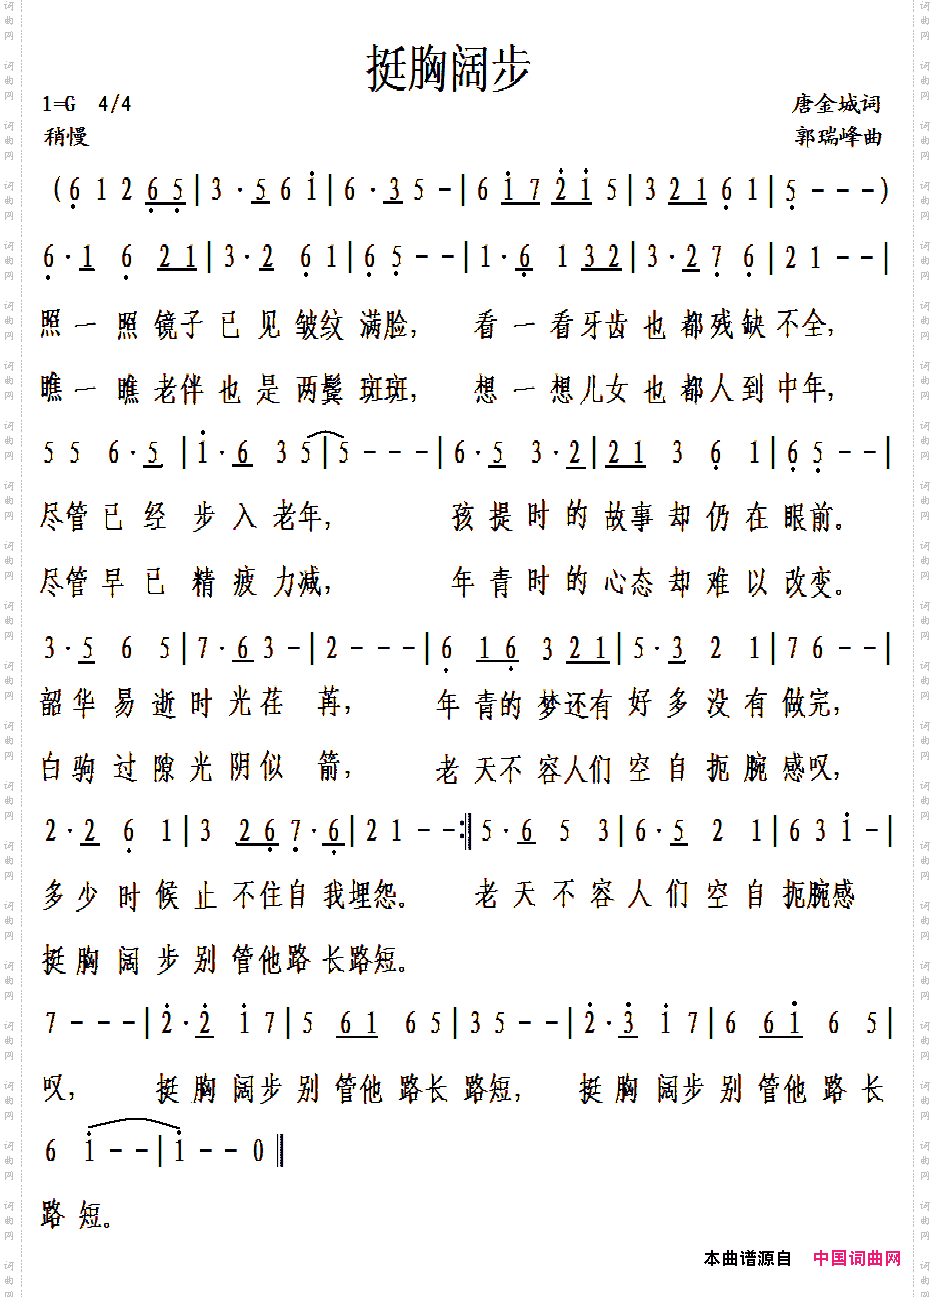 挺胸阔步
1=G 4/4 唐金城词
稍慢 郭瑞峰曲
(6 1 2 6 5|3·5 6 1|6·3 5 -|6 1 7 2 1 5|3 2 1 6 1|5 - - -)
6·1 6 2 1|3·2 6 1|6 5 - -|1·6 1 3 2|3·2 7 6|2 1 - -|
照一照镜子已见皱纹满脸, 看一看牙齿也都残缺不全,
瞧一瞧老伴也是两鬓斑斑, 想一想儿女也都人到中年,
5 5 6·5|1·6 3 5|5 - - -|6·5 3·2|2 1 3 6 1|6 5 - -|
尽管已经步入老年, 孩提时的故事却仍在眼前。
尽管早已精疲力减, 年青时的心态却难以改变。
3·5 6 5|7·6 3 -|2 - - -|6 1 6 3 2 1|5·3 2 1|7 6 - -|
韶华易逝时光荏苒, 年青的梦还有好多没有做完,
白驹过隙光阴似箭, 老天不容人们空自扼腕感叹,
2·2 6 1|3 2 6 7·6|2 1 - -:|5·6 5 3|6·5 2 1|6 3 1 -|
多少时候止不住自我埋怨。 老天不容人们空自扼腕感
挺胸阔步别管他路长路短。
7 - - -|2·2 1 7|5 6 1 6 5|3 5 - -|2·3 1 7|6 6 1 6 5|
叹, 挺胸阔步别管他路长路短, 挺胸阔步别管他路长
6 1 - -|1 - - 0‖
路短。
本曲谱源自 中国词曲网
词曲网